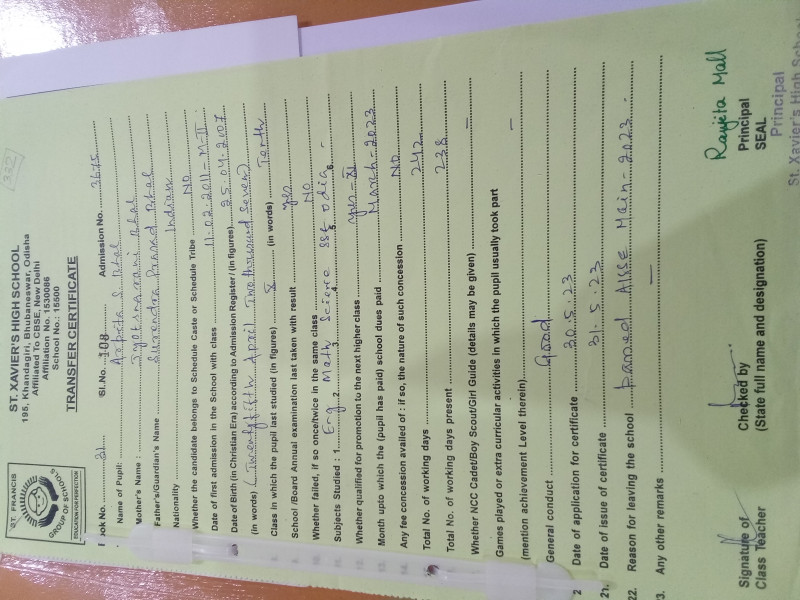 ST. FRANCIS
GROUP OF SCHOOLS
EDUCATION FOR PERFECTION
ST. XAVIER'S HIGH SCHOOL
195, Khandagiri, Bhubaneswar, Odisha
Affiliated To CBSE, New Delhi
Affiliation No. 1530086
School No.: 15500
TRANSFER CERTIFICATE
ook No. 31 Sl.No. 108 Admission No. 3675
Name of Pupil: Arpita S Dhal
Mother's Name : Jyotirmayi Dhal
Father's/Guardian's Name Surendra Prasad Dhal
Nationality Indian
Whether the candidate belongs to Schedule Caste or Schedule Tribe NO
Date of first admission in the School with class 11.02.2011 - M-II
Date of Birth (in Christian Era) according to Admission Register (in figures) 25.04.2007
(in words) (Twentyfifth April Twothousand Seven)
Class in which the pupil last studied (in figures) X (in words) Tenth
School /Board Annual examination last taken with result yes
Whether failed, if so once/twice in the same class NO
Subjects Studied : 1. Eng 2. Math 3. Science 4. SSt 5. Odia 6. -
Whether qualified for promotion to the next higher class yes - XI
Month upto which the (pupil has paid) school dues paid March - 2023
Any fee concession availed of : if so, the nature of such concession NO
Total No. of working days 242
Total No. of working days present 238
Whether NCC Cadet/Boy Scout/Girl Guide (details may be given) —
Games played or extra curricular activities in which the pupil usually took part
(mention achievement Level therein) —
General conduct Good
2 Date of application for certificate 30.5.23
21. Date of issue of certificate 31.5.23
22. Reason for leaving the school passed AISSE Main - 2023.
23. Any other remarks —
Signature of
Class Teacher
Checked by
(State full name and designation)
Ranjita Mall
Principal
SEAL
Principal
St. Xavier's High School